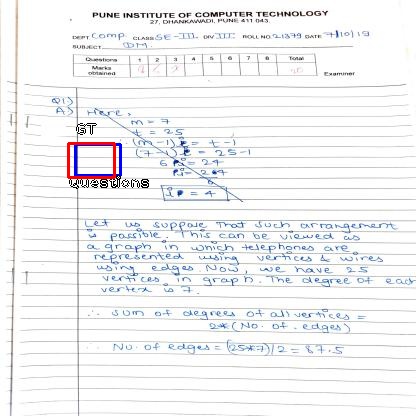 PUNE INSTITUTE OF COMPUTER TECHNOLOGY
27, DHANKAWADI, PUNE 411 043.
DEPT Comp. CLASS SE-III DIV III ROLL NO. 21379 DATE 7/10/19
SUBJECT DM.
Questions 1 2 3 4 5 6 7 8 Total
Marks obtained
Examiner
Q1)
A) Here,
m = 7
GT
t = 25
(m-1)i = t-1
(7-1)i = 25-1
6i = 24
Questions
i = 4
Let us suppose that such arrangement
is possible. This can be viewed as
a graph in which telephones are
represented using vertices & wires
using edges. Now, we have 25
vertices in graph. The degree of each
vertex is 7.
∴ Sum of degrees of all vertices =
2*(No. of. edges)
∴ No. of edges = (25*7)/2 = 87.5